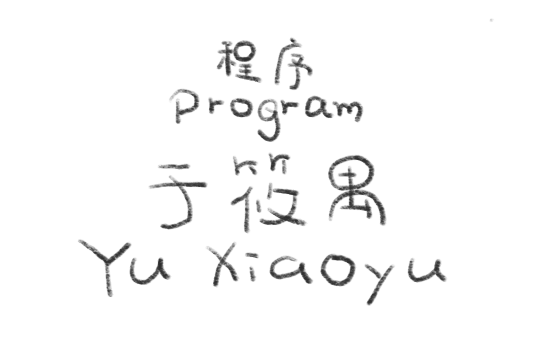 程序
Program
于筱禺
Yu Xiaoyu